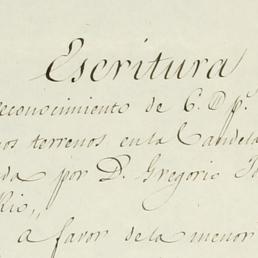 Escritura
reconocimiento de C. D. p.
os terrenos en la Candela
da por D. Gregorio
Rio,,
a favor de la menor